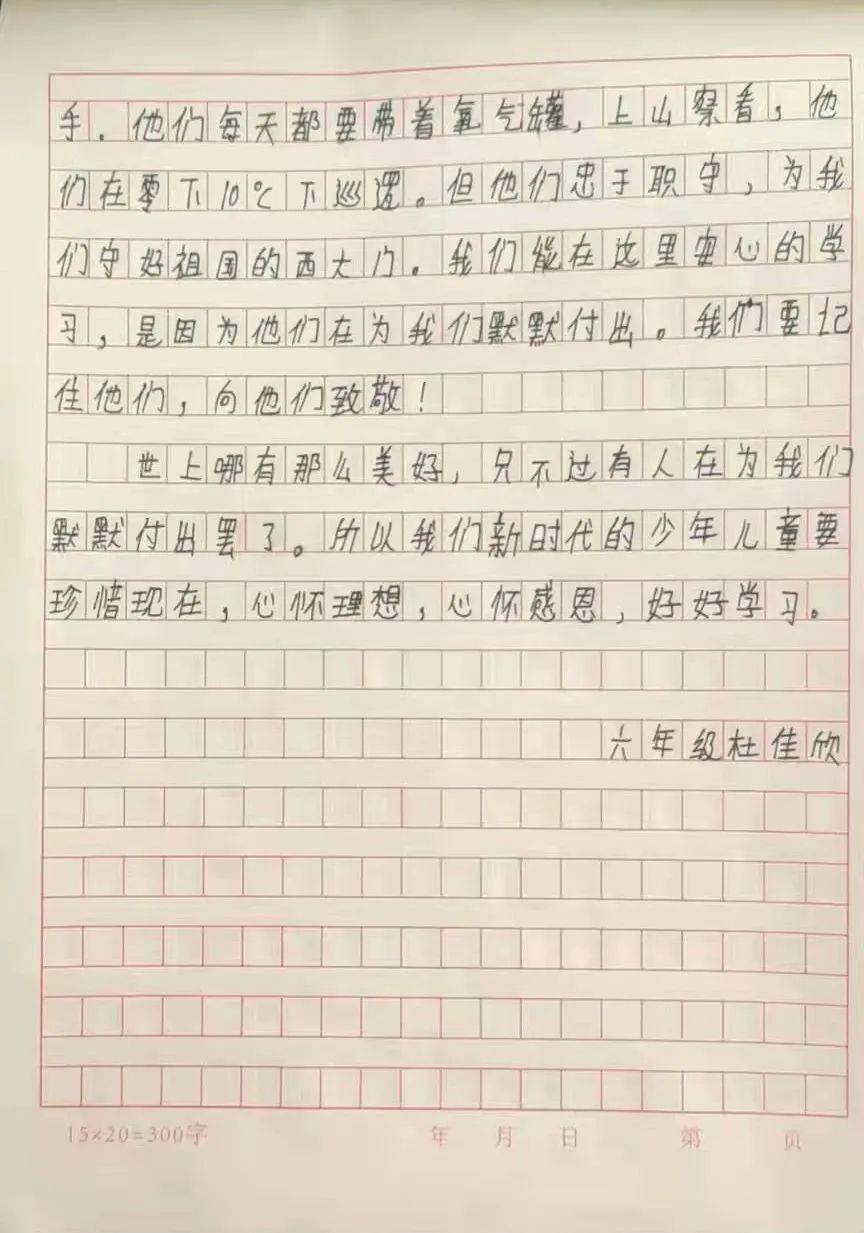 手.他们每天都要带着氧气罐,上山察看,他
们在零下10℃下巡逻。但他们忠于职守,为我
们守好祖国的西大门。我们能在这里安心的学
习,是因为他们在为我们默默付出。我们要记
住他们,向他们致敬!
世上哪有那么美好,只不过有人在为我们
默默付出罢了。所以我们新时代的少年儿童要
珍惜现在,心怀理想,心怀感恩,好好学习。
六年级杜佳欣
15×20=300字 年 月 日 第 页